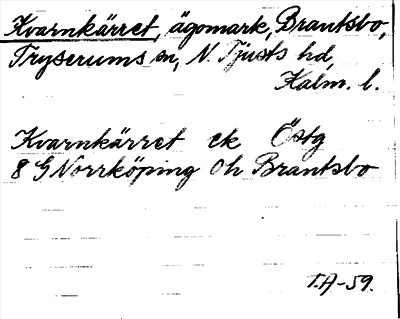 Kvarnkärret, ägomark, Brantsbo,
Tryserums sn, N. Tjusts hd,
Kalm. l.
Kvarnkärret ek Östg
8 G Norrköping Oh Brantsbo
T.A-59.